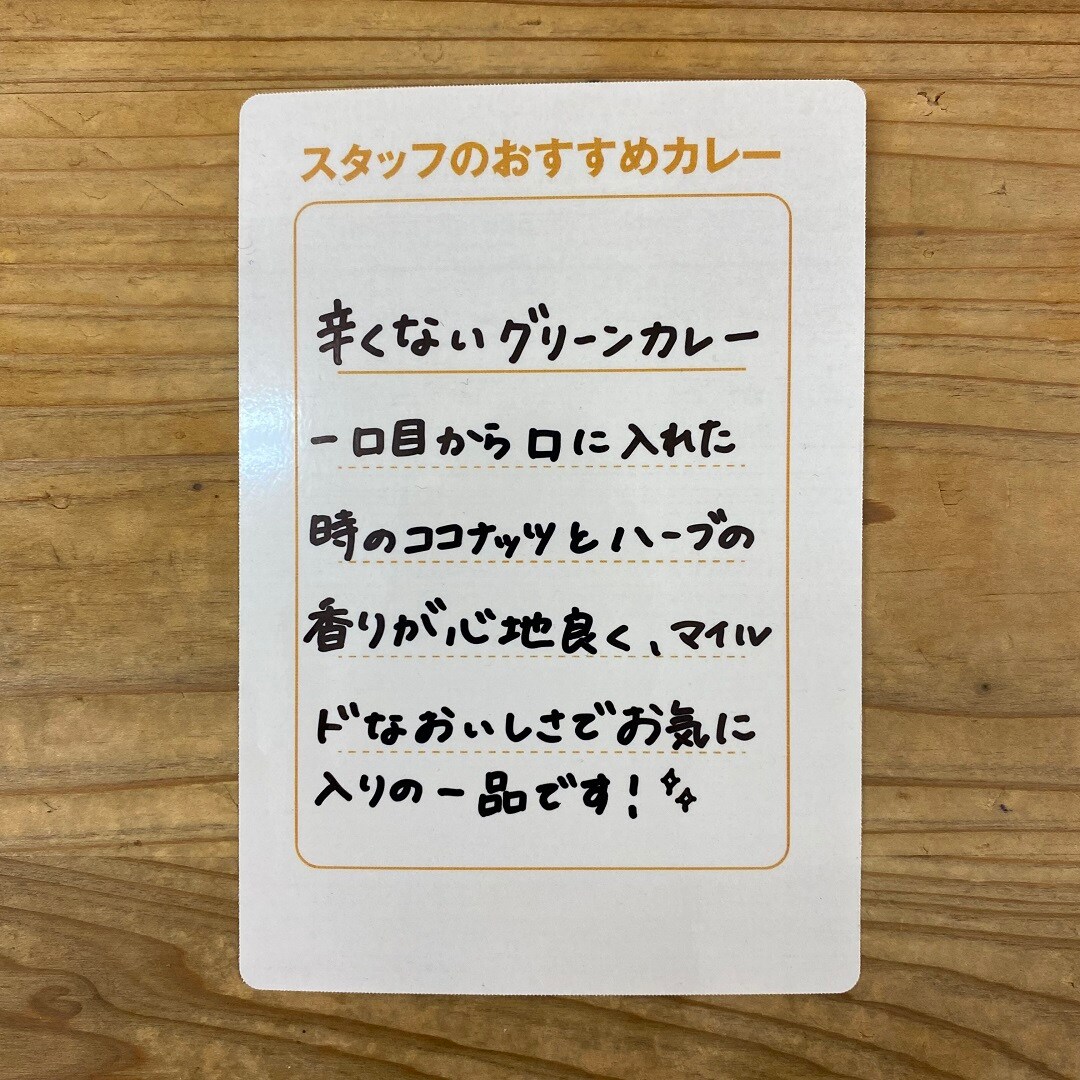 スタッフのおすすめカレー
辛くないグリーンカレー
一口目から口に入れた
時のココナッツとハーブの
香りが心地良く、マイル
ドなおいしさでお気に
入りの一品です!